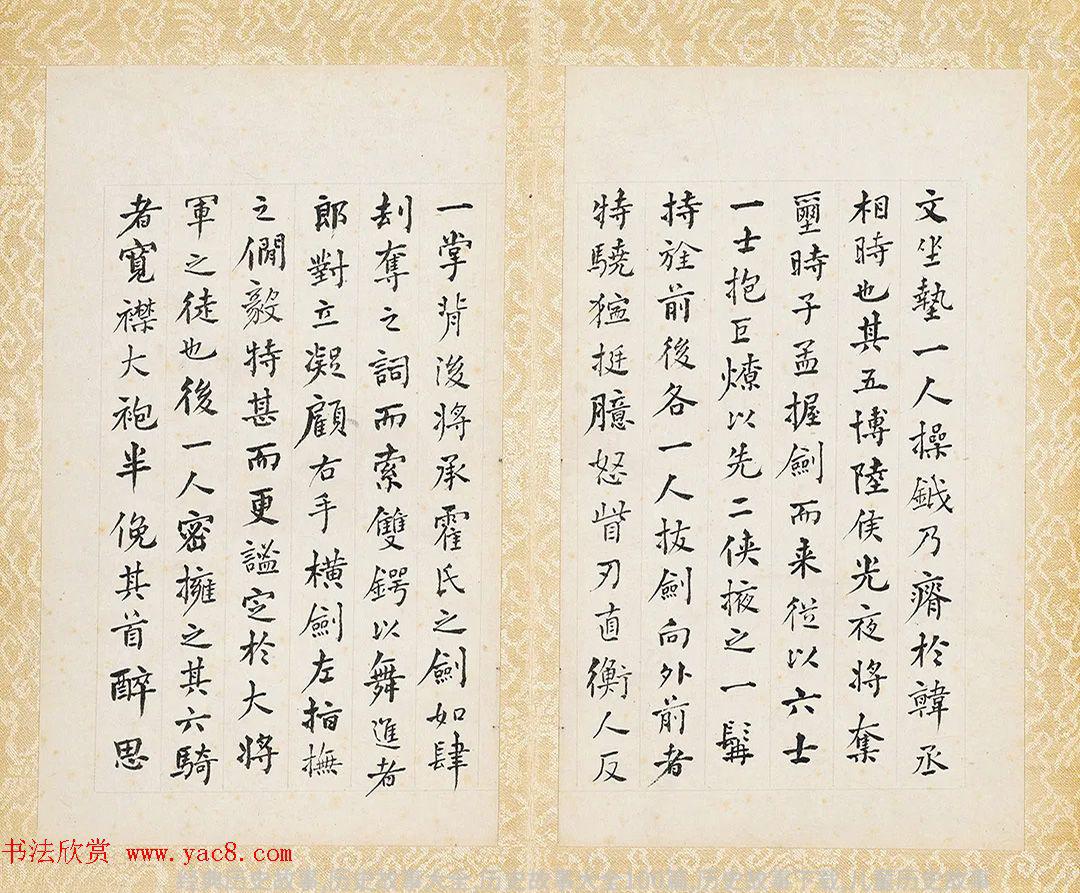 文坐墊一人操鉞乃瘠於韓丞
相時也其五博陸侯光夜將奪
璽時子孟握劍而来從以六士
一士抱巨燎以先二俠掖之一髯
持旌前後各一人拔劍向外前者
特驍猛挺臆怒眥刃直衝人反
一掌背後將承霍氏之劍如肆
刦奪之詞而索雙鍔以舞進者
郎對立凝顧右手橫劍左指撫
之僩毅特甚而更謐定於大將
軍之徒也後一人密擁之其六騎
者寬襟大袍半俛其首醉思
书法欣赏 www.yac8.com